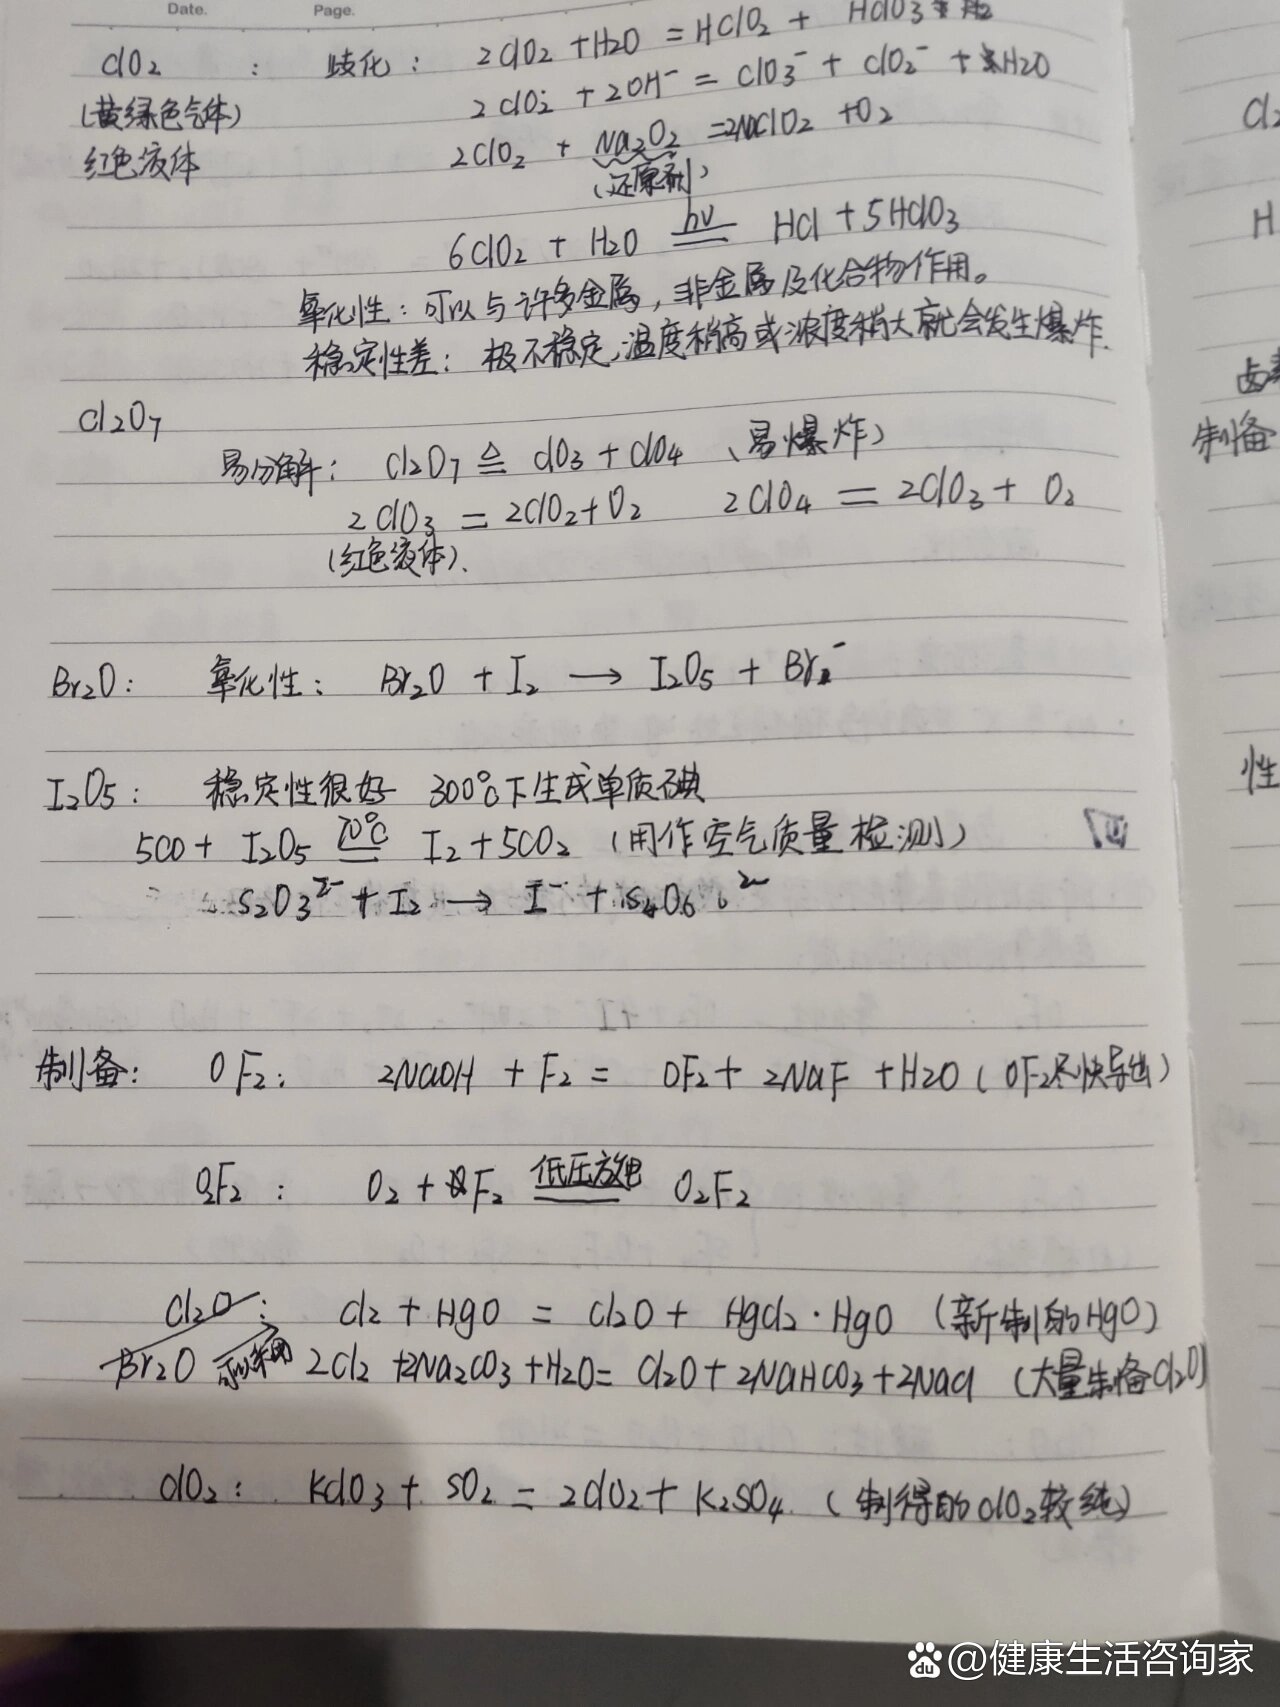 Date. Page.
ClO2 : 歧化: 2ClO2 + H2O = HClO2 + HClO3
(黄绿色气体) 2ClO2 + 2OH⁻ = ClO3⁻ + ClO2⁻ + H2O
红色液体 2ClO2 + Na2O2 = 2NaClO2 + O2
(还原剂)
6ClO2 + H2O hν HCl + 5HClO3
氧化性: 可以与许多金属, 非金属及化合物作用。
稳定性差: 极不稳定, 温度稍高或浓度稍大就会发生爆炸.
Cl2O7
易分解: Cl2O7 ≙ ClO3 + ClO4 (易爆炸)
2ClO3 = 2ClO2 + O2 2ClO4 = 2ClO3 + O2
(红色液体).
Br2O: 氧化性: Br2O + I2 → I2O5 + Br⁻
I2O5: 稳定性很好 300℃下生成单质碘
5CO + I2O5 70℃ I2 + 5CO2 (用作空气质量检测)
S2O3²⁻ + I2 → I⁻ + S4O6²⁻
制备: OF2: 2NaOH + F2 = OF2 + 2NaF + H2O (OF2尽快导出)
O2F2: O2 + F2 低压放电 O2F2
Cl2O: Cl2 + HgO = Cl2O + HgCl2·HgO (新制的HgO)
Br2O 2Cl2 + 2Na2CO3 + H2O = Cl2O + 2NaHCO3 + 2NaCl (大量制备Cl2O)
ClO2: KClO3 + SO2 = 2ClO2 + K2SO4 (制得的ClO2较纯)
Cl2
H
卤素
制备
性
du @健康生活咨询家